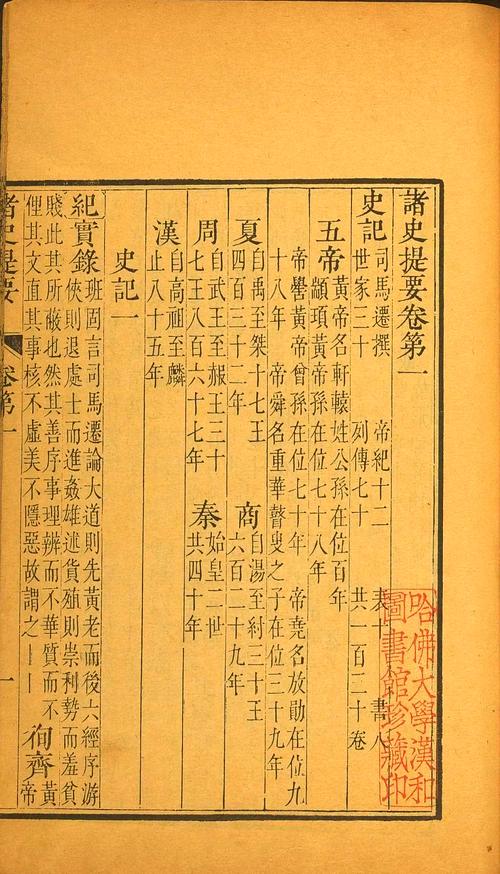 諸史提要卷第一
史記司馬遷撰　帝紀十二　表十　書八
世家三十　列傳七十　共一百二十卷
五帝黃帝名軒轅姓公孫在位百年
顓頊黃帝孫在位七十八年
帝嚳黃帝曾孫在位七十年　帝堯名放勛在位九
十八年　帝舜名重華瞽叟之子在位三十九年
夏自禹至桀十七王
四百三十二年
商自湯至紂三十王
六百二十九年
周自武王至赧王三十
七王八百六十七年
秦始皇二世
共四十年
漢自高祖至麟
止八十五年
史記一
紀實錄班固言司馬遷論大道則先黃老而後六經序游
俠則退處士而進姦雄述貨殖則崇利勢而羞貧
賤此其所蔽也然其善序事理辨而不華質而不
俚其文直其事核不虛美不隱惡故謂之——
徇齊黃
帝
諸史提要
卷第一
一
哈佛大學漢和
圖書館珍藏印